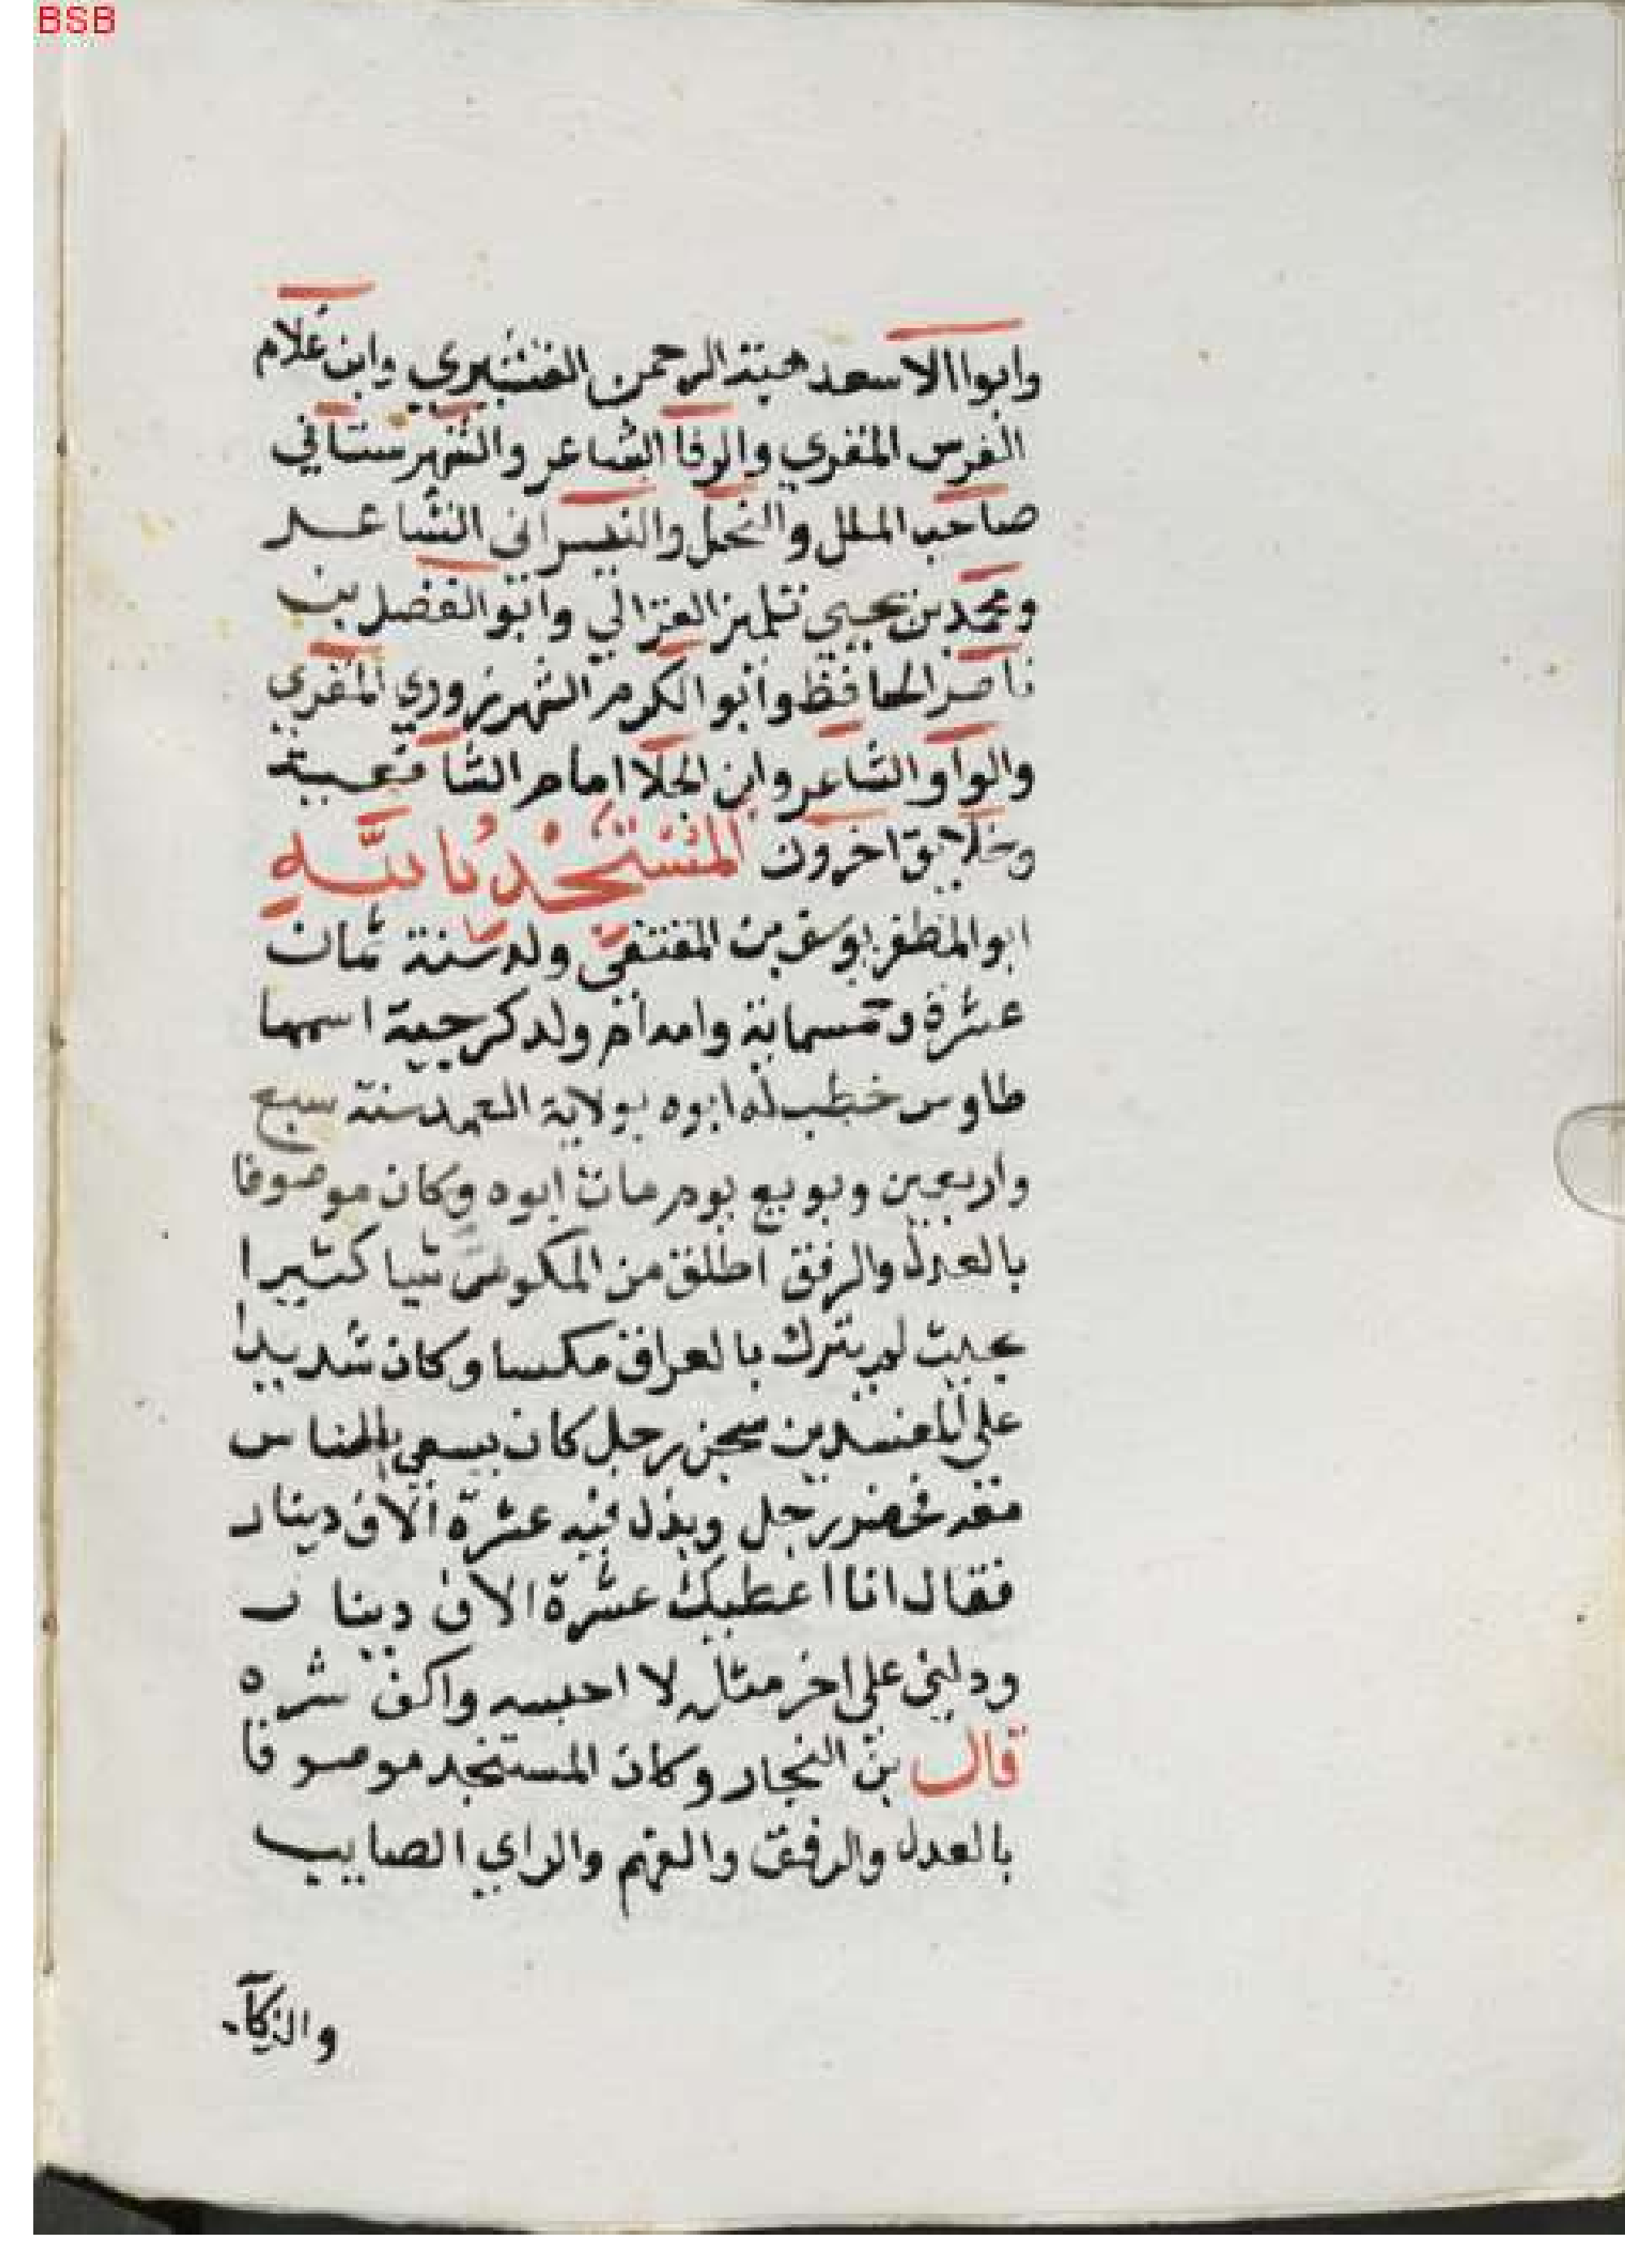 BSB
وابوا الاسعد هبة الرحمن القشيري وابن غلام
الفرس المقري والرفا الشاعر والشهرستاني
صاحب الملل والنحل والقيسراني الشاعر
ومحمد بن يحيي تلميذ الغزالي وابو الفضل بن
ناصر الحافظ وابو الكرم الشهرزوري المقري
والواو الشاعر وابن الجلا امام الشافعية
وخلايق اخرون المستنجد بالله
ابو المظفر يوسف بن المقتفي ولد سنة ثمان
عشرة وخمسماية وامه ام ولد كرجية اسمها
طاوس خطب له ابوه بولاية العهد سنة سبع
واربعين وبويع يوم مات ابوه وكان موصوفا
بالعدل والرفق اطلق من المكوس شيا كثيرا
بحيث لم يترك بالعراق مكسا وكان شديدا
علي المفسدين سجن رجل كان يسعي بالناس
مده فحضر رجل وبذل فيه عشرة الاف دينار
فقال انا اعطيك عشرة الاف دينار
ودلني علي اخر مثله لا احبسه واكف شره
قال بن النجار وكان المستنجد موصوفا
بالعدل والرفق والفهم والراي الصايب
والذكآء